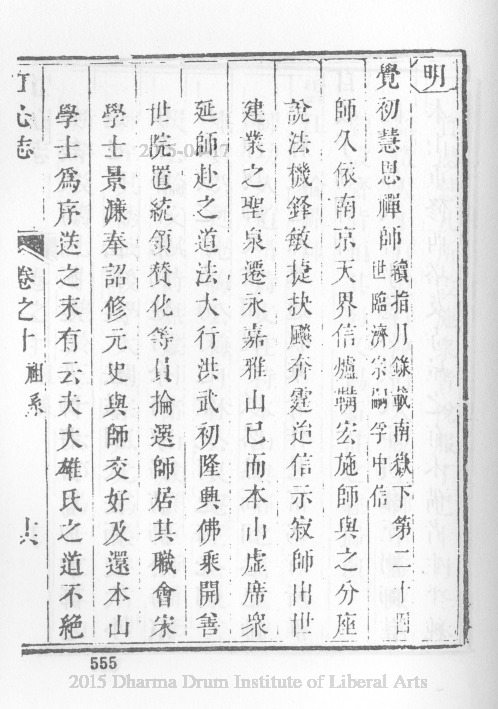 明
覺初慧恩禪師續指月錄載南嶽下第二十
世臨濟宗嗣孚中信
師久依南京天界信爐鞴宏施師與之分座
說法機鋒敏捷抉颷奔霆迨信示寂師出世
建業之聖泉遷永嘉雅山已而本山虛席衆
延師赴之道法大行洪武初隆興佛乘開善
世院置統領贊化等員掄選師居其職會宋
學士景濂奉詔修元史與師交好及還本山
學士爲序送之末有云夫大雄氏之道不絕
志
卷之十
祖系
555
2015 Dharma Drum Institute of Liberal Arts